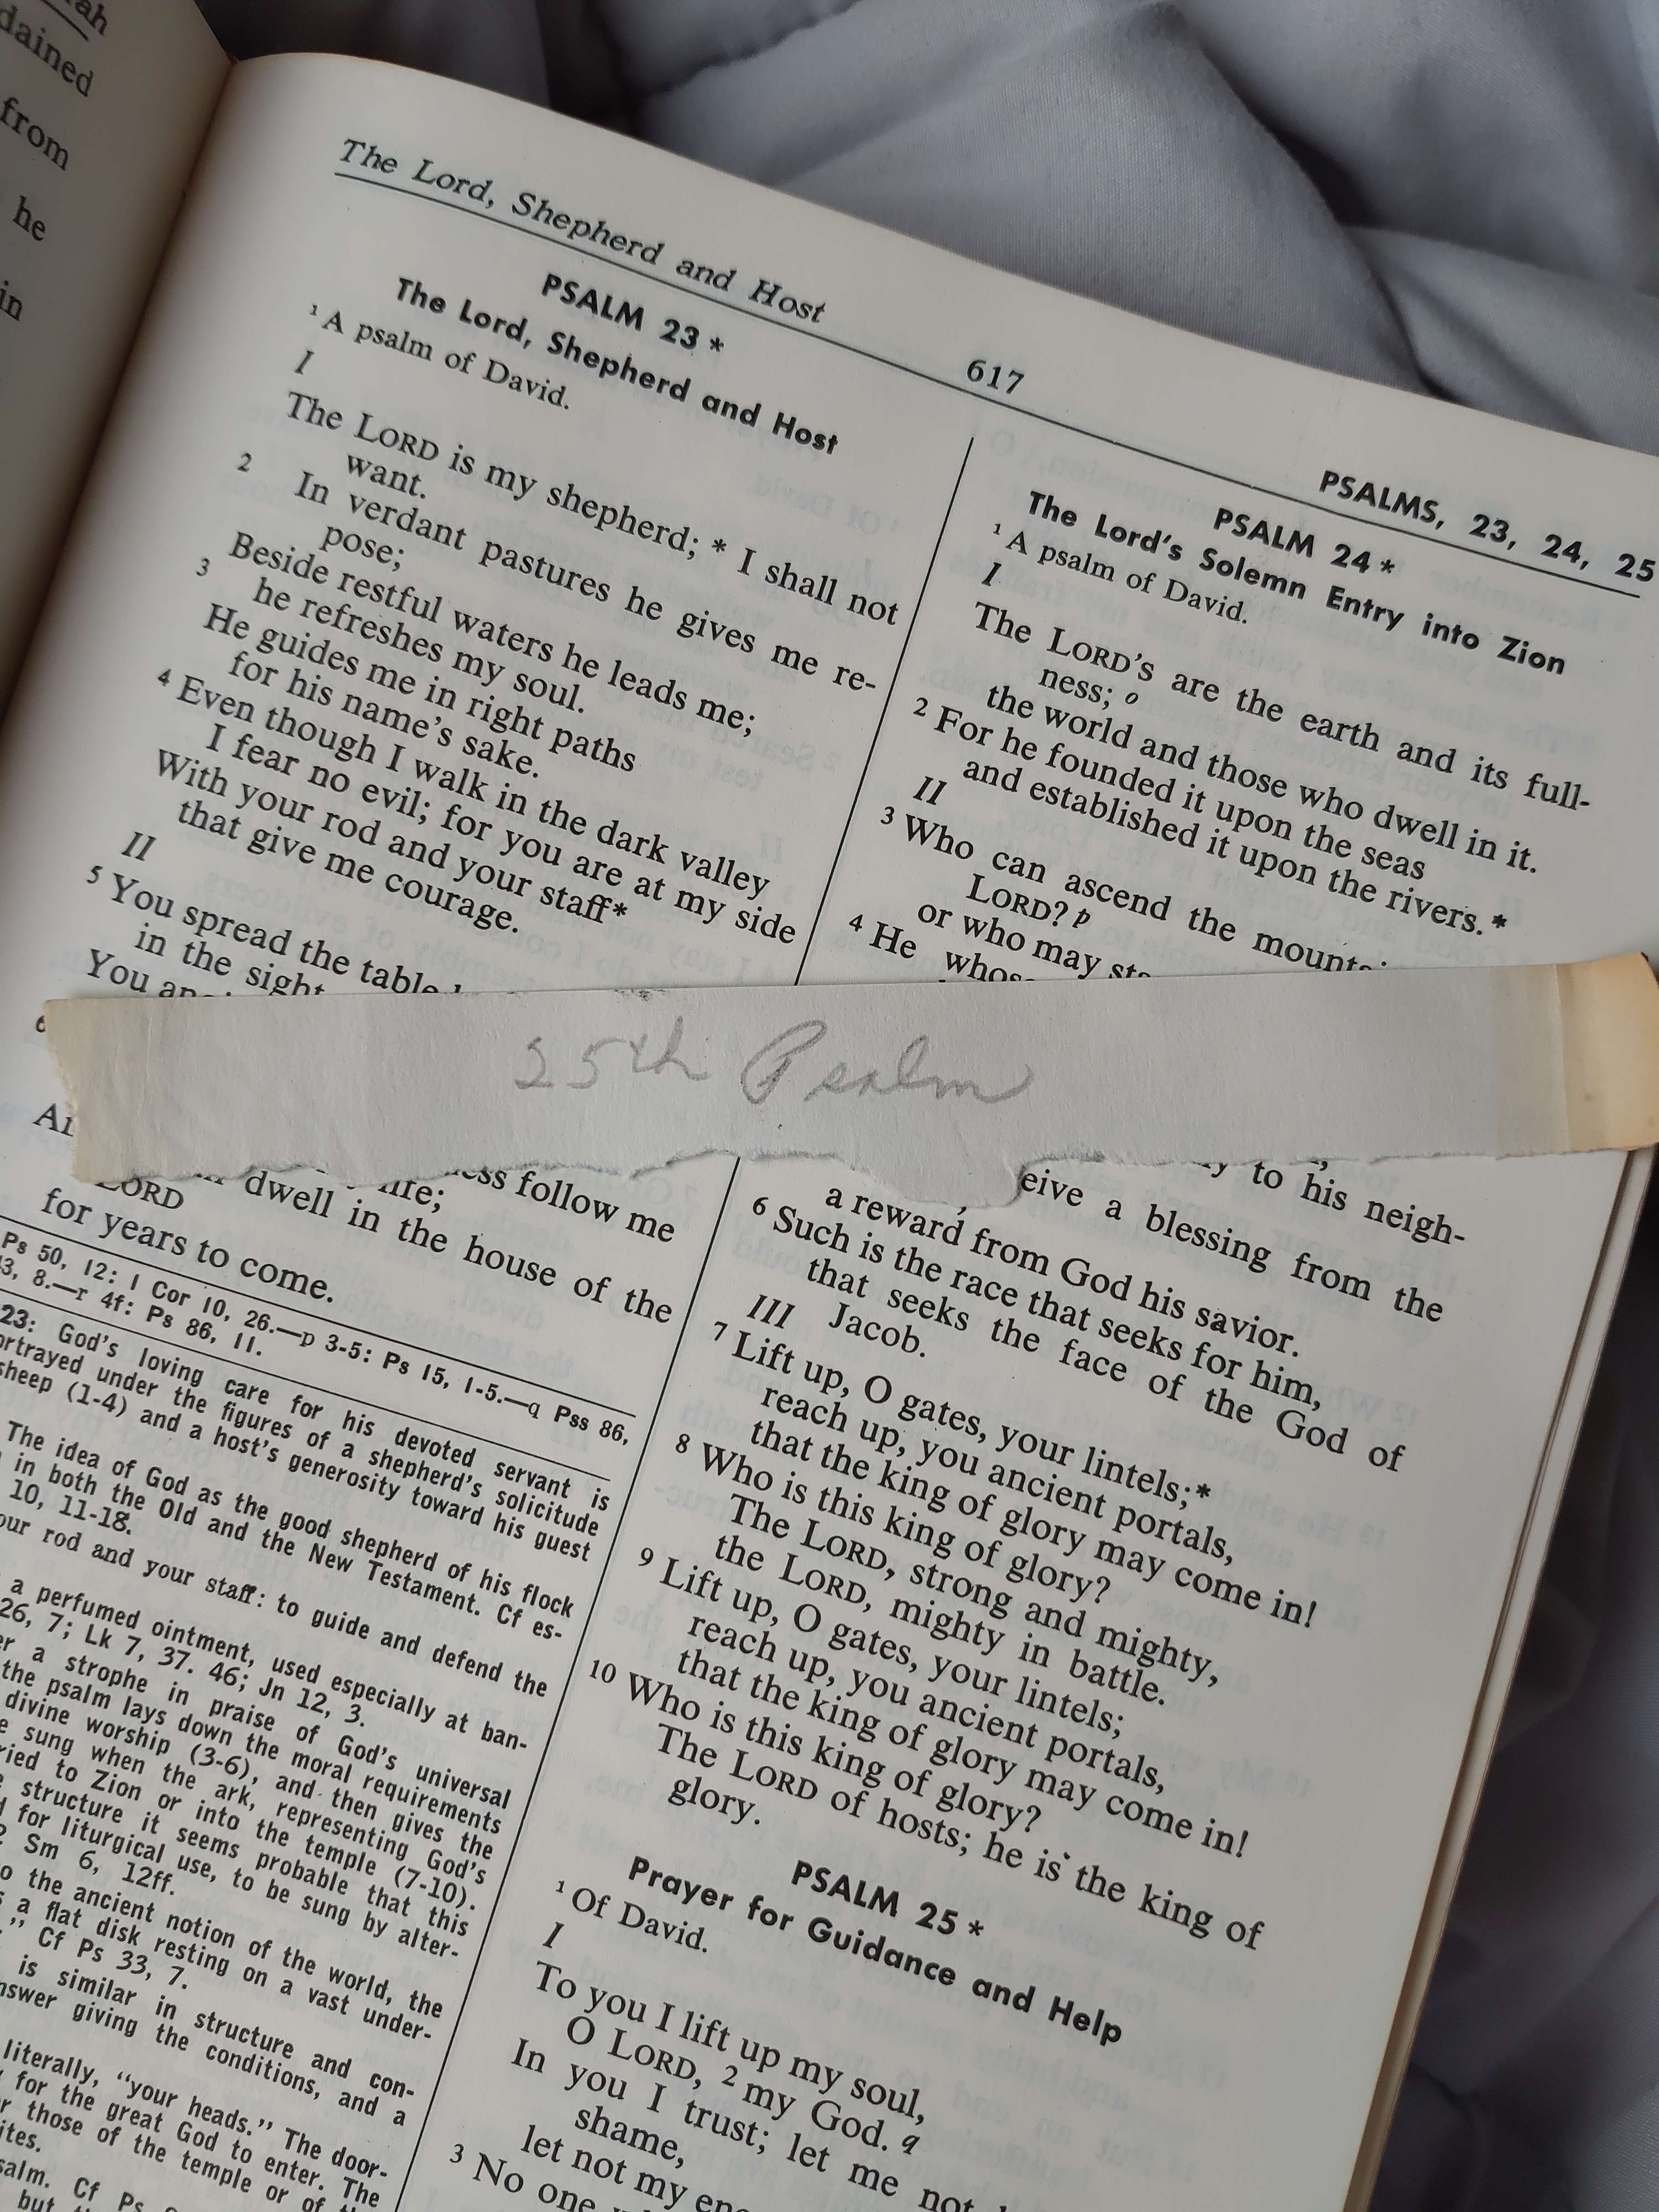 dained
from
he
in
The Lord, Shepherd and Host
617
PSALMS, 23, 24, 25
PSALM 23*
The Lord, Shepherd and Host
1 A psalm of David.
I
The LORD is my shepherd; * I shall not
want.
2 In verdant pastures he gives me re-
pose;
Beside restful waters he leads me;
3 he refreshes my soul.
He guides me in right paths
for his name's sake.
4 Even though I walk in the dark valley
I fear no evil; for you are at my side
With your rod and your staff*
that give me courage.
II
5 You spread the table
in the sight
You
6
25th Psalm
follow me
life;
dwell in the house of the
LORD
for years to come.
Ps 50, 12: 1 Cor 10, 26.—p 3-5: Ps 15, 1-5.—q Pss 86,
8.—r 4f: Ps 86, 11.
23: God's loving care for his devoted servant is
under the figures of a shepherd's solicitude
sheep (1-4) and a host's generosity toward his guest
The idea of God as the good shepherd of his flock
in both the Old and the New Testament. Cf es-
10, 11-18.
rod and your staff: to guide and defend the
a perfumed ointment, used especially at ban-
26, 7; Lk 7, 37. 46; Jn 12, 3.
a strophe in praise of God's universal
the psalm lays down the moral requirements
divine worship (3-6), and then gives the
sung when the ark, representing God's
to Zion or into the temple (7-10).
structure it seems probable that this
for liturgical use, to be sung by alter-
Sm 6, 12ff.
the ancient notion of the world, the
a flat disk resting on a vast under-
" Cf Ps 33, 7.
is similar in structure and con-
giving the conditions, and a
literally, "your heads." The door-
for the great God to enter. The
those of the temple or of
Cf Ps
but
PSALM 24*
The Lord's Solemn Entry into Zion
1 A psalm of David.
I
The LORD's are the earth and its full-
ness; o
the world and those who dwell in it.
2 For he founded it upon the seas
and established it upon the rivers.*
II
3 Who can ascend the
LORD? p
or who may
4 He
to his neigh-
a blessing from the
a reward from God his savior.
6 Such is the race that seeks for him,
that seeks the face of the God of
Jacob.
III
7 Lift up, O gates, your lintels;*
reach up, you ancient portals,
that the king of glory may come in!
8 Who is this king of glory?
The LORD, strong and mighty,
the LORD, mighty in battle.
9 Lift up, O gates, your lintels;
reach up, you ancient portals,
that the king of glory may come in!
10 Who is this king of glory?
The LORD of hosts; he is the king of
glory.
PSALM 25*
Prayer for Guidance and Help
1 Of David.
I
To you I lift up my soul,
O LORD, 2 my God. q
In you I trust; let me not
shame,
let not my
3 No one